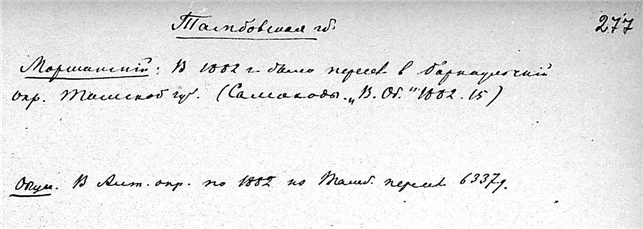 Тамбовская гб.
277
Моршанский: В 1882 г. было пересел. в Барнаульский
окр. Томской гу. (Самоходы. „В. Об." 1882. 15)
В Алт. окр. по 1882 из Тамб. пересел 6337 д.